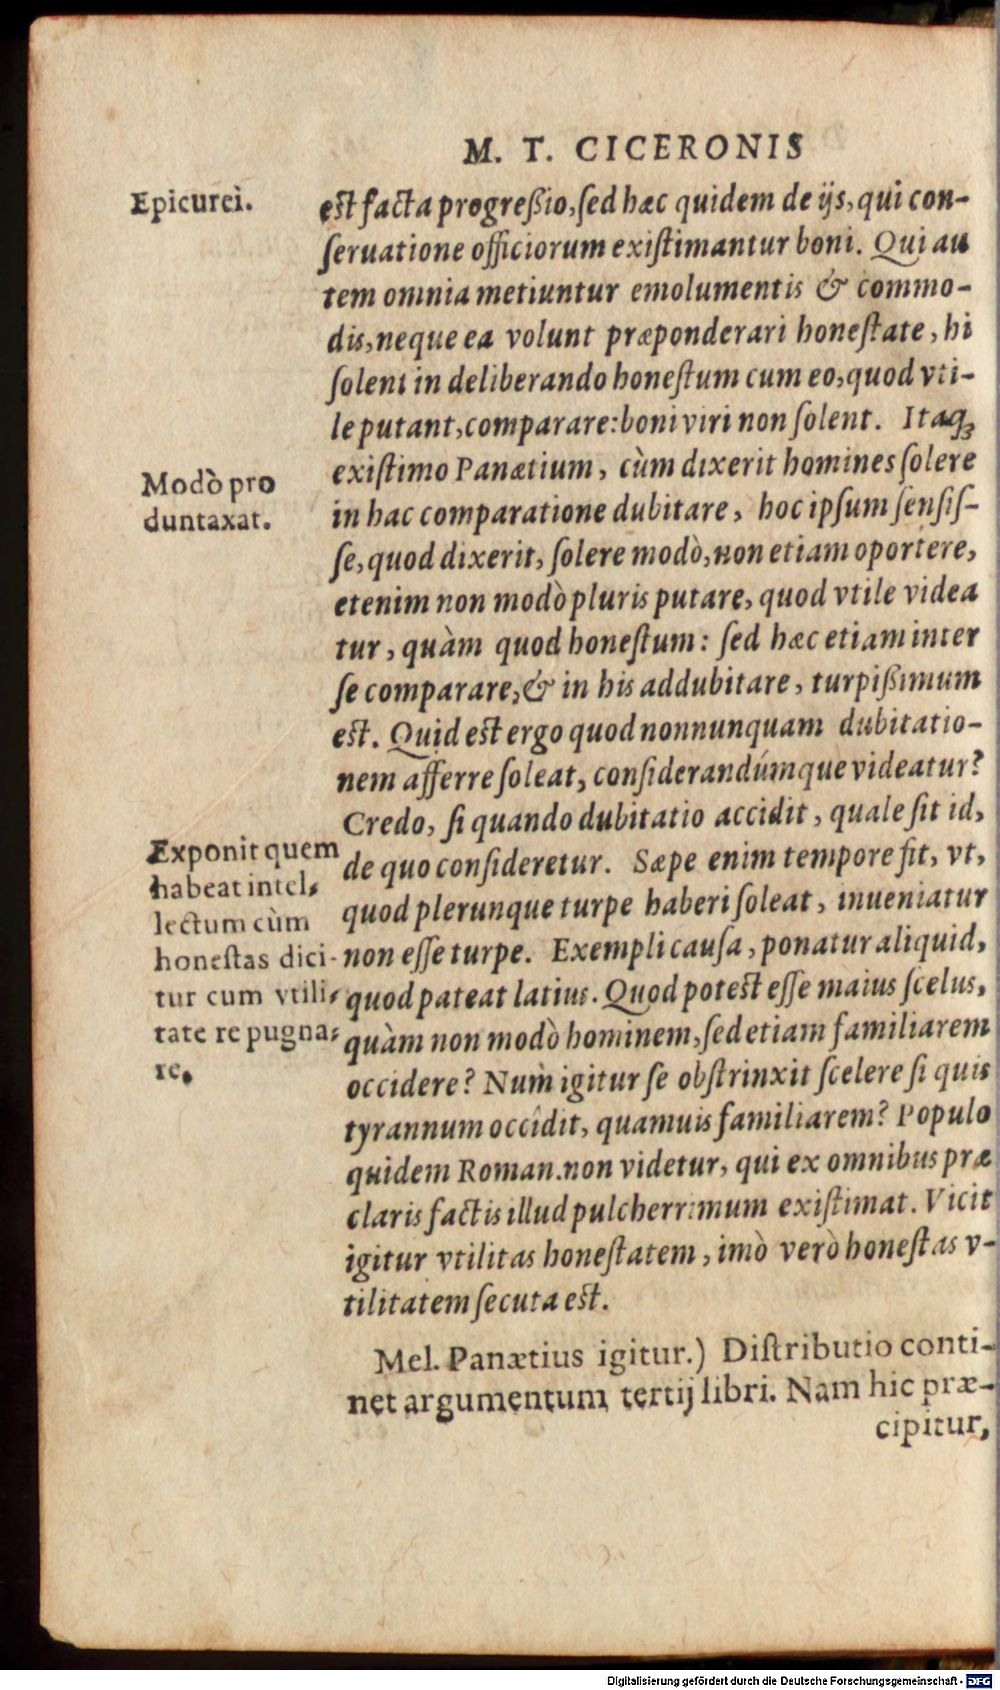 M. T. CICERONIS
Epicurei.
est facta progreßio, sed hæc quidem de ijs, qui con-
seruatione officiorum existimantur boni. Qui au
tem omnia metiuntur emolumentis & commo-
dis, neque ea volunt præponderari honestate, hi
solent in deliberando honestum cum eo, quod vti-
le putant, comparare: boni viri non solent. Itaqꝫ
Modò pro
duntaxat.
existimo Panætium, cùm dixerit homines solere
in hac comparatione dubitare, hoc ipsum sensis-
se, quod dixerit, solere modò, non etiam oportere,
etenim non modò pluris putare, quod vtile videa
tur, quàm quod honestum: sed hæc etiam inter
se comparare, & in his addubitare, turpißimum
est. Quid est ergo quod nonnunquam dubitatio-
nem afferre soleat, considerandúmque videatur?
Credo, si quando dubitatio accidit, quale sit id,
Exponit quem
habeat intel-
lectum cùm
honestas dici-
tur cum vtili-
tate repugna-
re.
de quo consideretur. Sæpe enim tempore fit, vt,
quod plerunque turpe haberi soleat, inueniatur
non esse turpe. Exempli causa, ponatur aliquid,
quod pateat latius. Quod potest esse maius scelus,
quàm non modò hominem, sed etiam familiarem
occidere? Num igitur se obstrinxit scelere si quis
tyrannum occidit, quamuis familiarem? Populo
quidem Roman. non videtur, qui ex omnibus præ
claris factis illud pulcherrimum existimat. Vicit
igitur vtilitas honestatem, imò verò honestas v-
tilitatem secuta est.
Mel. Panætius igitur.) Distributio conti-
net argumentum tertij libri. Nam hic præ-
cipitur,
Digitalisierung gefördert durch die Deutsche Forschungsgemeinschaft - DFG